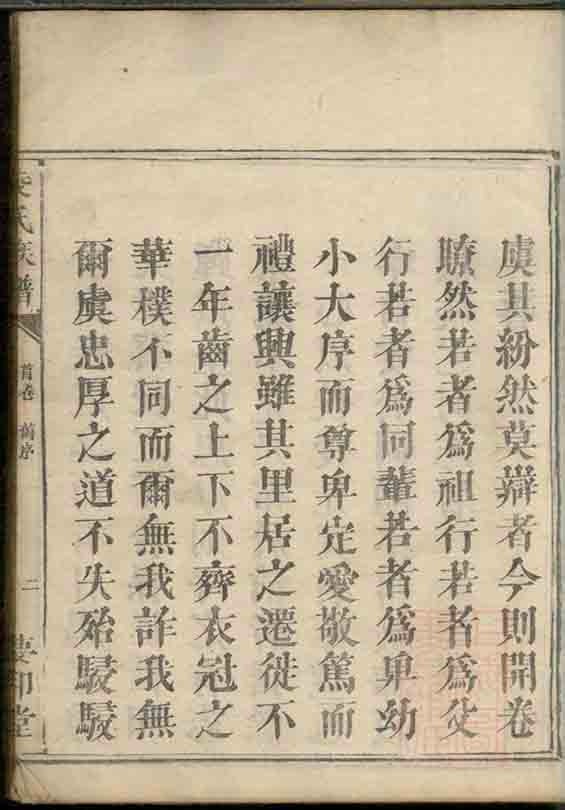 虞其紛然莫辯者今則開卷
瞭然若者爲祖行若者爲父
行若者爲同輩若者爲卑幼
小大序而尊卑定愛敬篤而
禮讓興雖其里居之遷徙不
一年齒之上下不齊衣冠之
華樸不同而爾無我詐我無
爾虞忠厚之道不失殆駸駸
氏族譜
首卷 舊序
二
堂